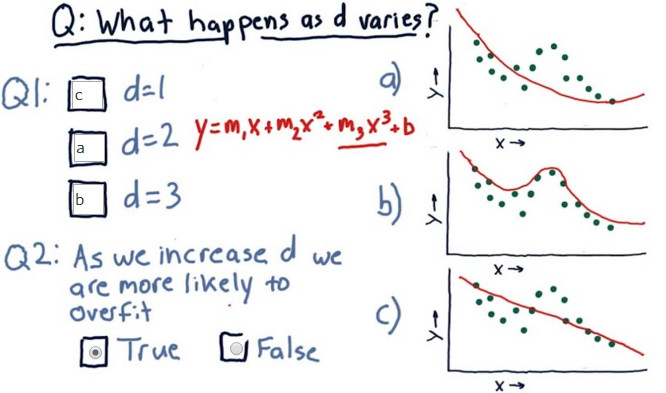 Q: What happens as d varies?
Q1: c d=1
a d=2 y=m₁x+m₂x²+m₃x³+b
b d=3
Q2: As we increase d we
are more likely to
overfit
True False
a)
y→
x→
b)
y→
x→
c)
y→
x→